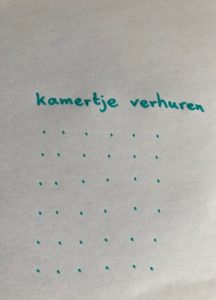 kamertje verhuren